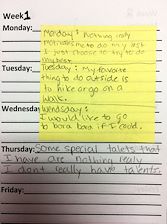 Week 1
Monday:
Monday: Nothing realy
motivates me to do my best
I just choose to try to do
my best
Tuesday:
Tuesday: My favorite
thing to do outside is
to hike or go on a
walk.
Wednesday
Wensday:
I would like to go
to bora bora if I could.
Thursday: Some special talets that
I have are nothing realy
I dont really have talents.
Friday: